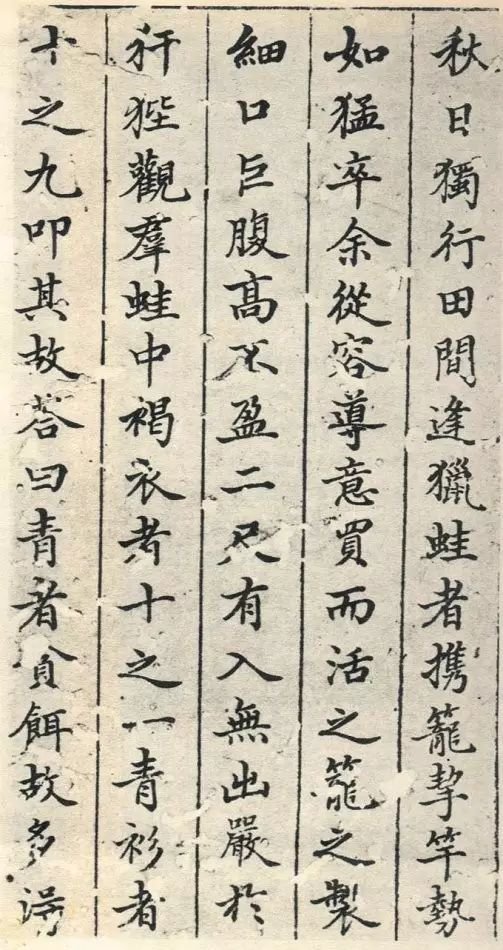 秋日獨行田間逢獵蛙者攜籠挈竿勢
如猛卒余從容導意買而活之籠之製
細口巨腹高不盈二尺有入無出嚴於
犴狴觀羣蛙中褐衣者十之一青衫者
十之九叩其故荅曰青者貪餌故多得